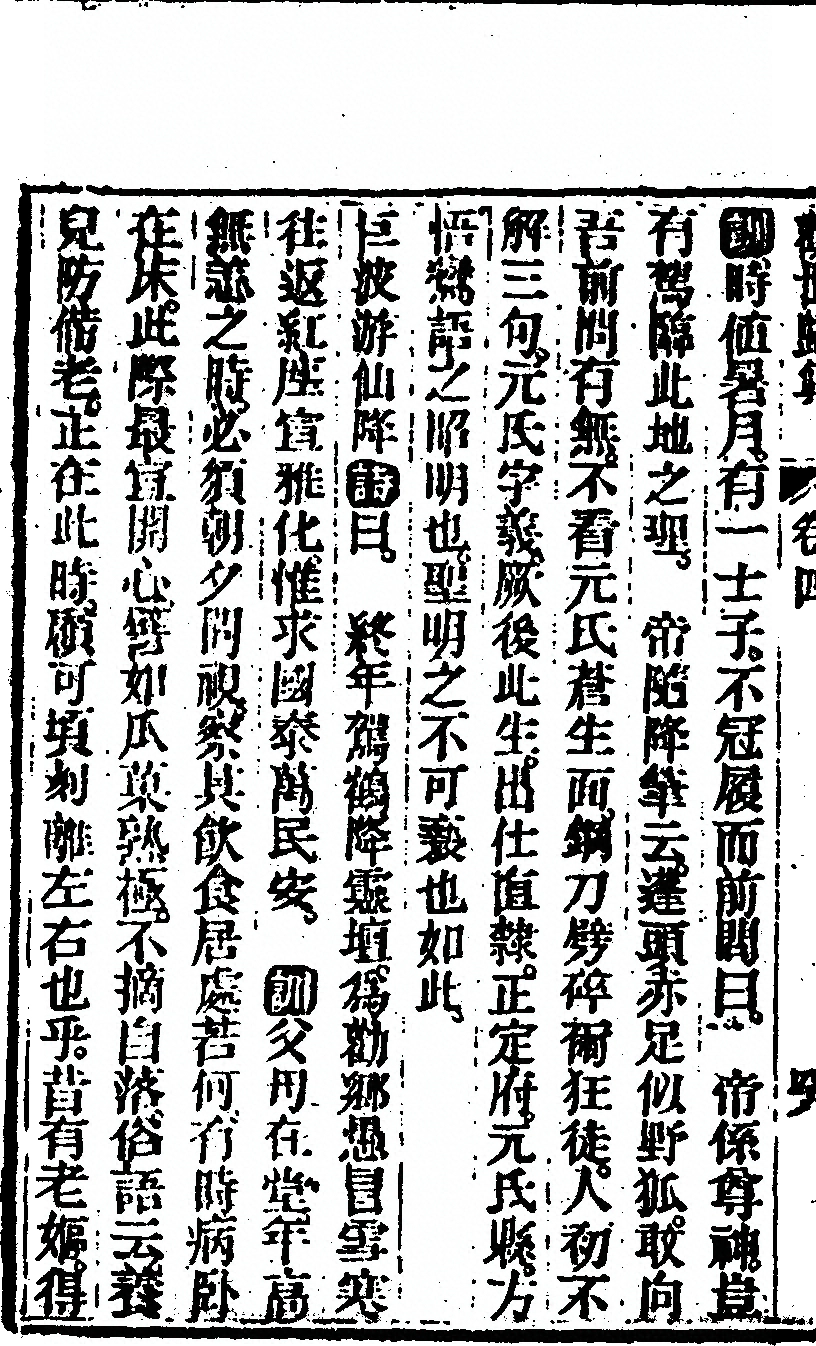 卷四
訓時值暑月。有一士子。不冠履而前問曰。　帝係尊神。豈
有駕臨此地之理。　帝陡降筆云。蓬頭赤足似野狐。敢向
吾前問有無。不看元氏蒼生面。鋼刀劈碎爾狂徒。人初不
解三句。元氏字義。厥後此生。出仕直隸。正定府。元氏縣。方
悟鸞語之昭明也。聖明之不可褻也如此。
巨波游仙降詩曰。　終年駕鶴降靈壇。為勸鄉愚冒雪寒
往返紅塵宣雅化。惟求國泰萬民安。　訓父母在堂。年高
無恙之時。必須朝夕問視。察其飲食居處若何。有時病卧
在床。此際最宜開心。譬如瓜菓熟極。不摘自落。俗語云。養
兒防備老。正在此時。頃可頃刻離左右也乎。昔有老嫗。得